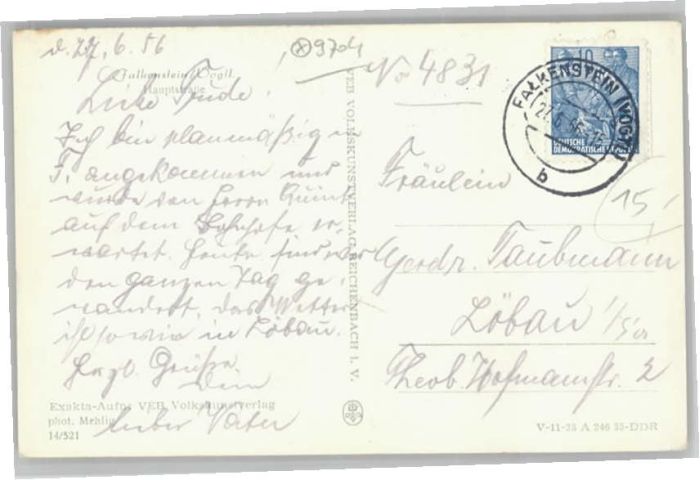 d. 27.6.56
⊗9704
No 4831
Falkenstein/Vogtl.
Hauptstraße
Liebe Trude!
Ich bin planmäßig in
F. angekommen und
wurde von Herrn
auf dem Bahnhofe er-
wartet. Heute sind wir
den ganzen Tag ge-
wandert, das Wetter
ist so wie in Löbau.
Herzl. Grüße
Dein
lieber Vater
Exakta-Aufn. VEB Volkskunstverlag
phot. Mehlig
14/521
VEB VOLKSKUNSTVERLAG REICHENBACH I. V.
10
DEUTSCHE
DEMOKRATISCHE REPUBLIK
FALKENSTEIN (VOGTL)
b
15
Fräulein
Gerdr. Taubmann
Löbau i/Sa
Theob. Hofmannstr. 2
V-11-28 A 246 55-DDR